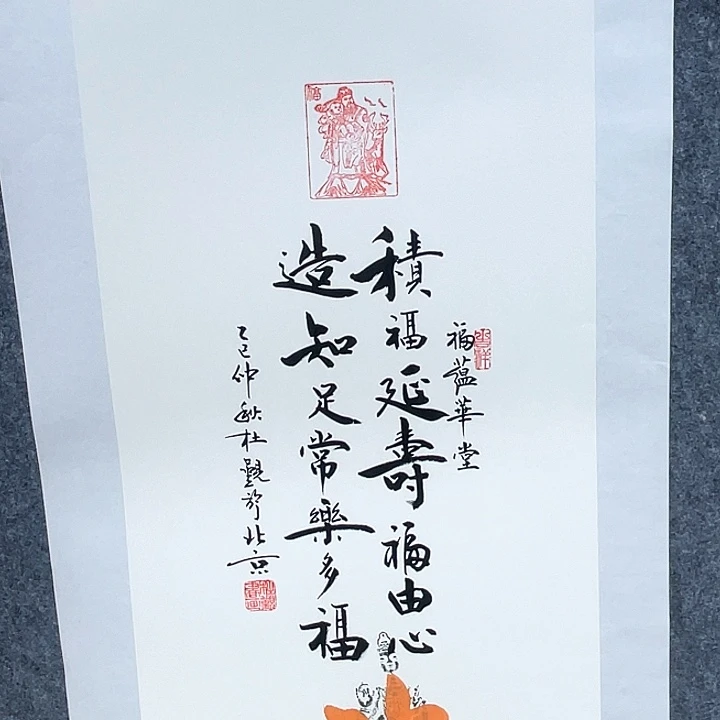 福蕴華堂
積福延壽福由心
造知足常樂多福
乙巳仲秋杜觀於北京